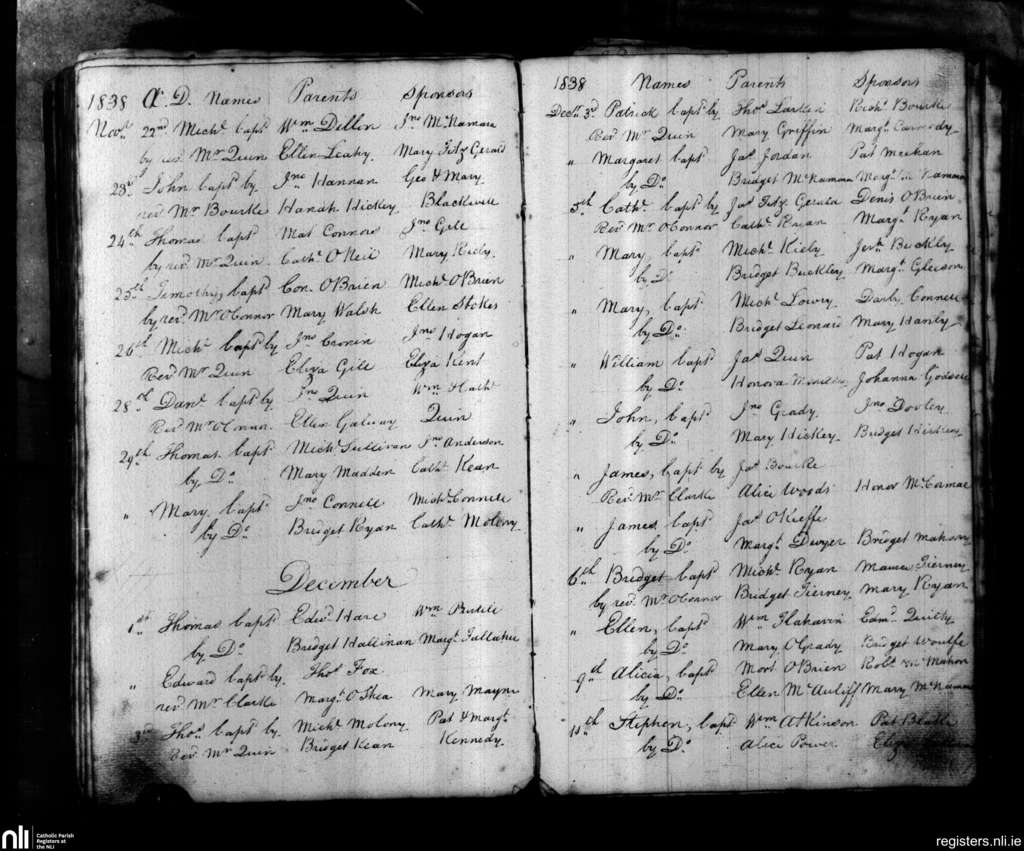 1838 A.D. Names Parents Sponsors
Novr. 22nd Michl. bapt. Wm. Dillon Jno. McNamara
by revd. Mr. Quin Ellen Leahy. Mary Fitz Gerald
23rd John bapt. by Jno. Hannan Geo & Mary
revd. Mr. Bourke Hanah Hickey
24th Thomas bapt. Mat Connors Jno. Gill
by revd. Mr. Quin. Cath. O'Neil Mary Kieby.
25th Timothy, bapt. Con. O'Brien Michl. O'Brien
by revd. Mr. O'Connor Mary Walsh Ellen Stokes
26th Michl. bapt. by Jno. Cronin Jno. Hogan
Revd. Mr. Quin Eliza Gill Eliza Kent
28th Danl. bapt. by Jno. Quin Wm. & Cath.
Revd. Mr. Ellen Galway Quin
29th Thomas. bapt. Michl. Sullivan Jno. Anderson
by Do. Mary Madden Cath. Kean
" Mary, bapt. Jno. Connell Michl. Connell
by Do. Bridget Ryan Cath. Molony.
December
1st Thomas bapt. Edwd. Hare Wm.
by Do. Bridget Hallinan Margt.
" Edward bapt. by. Thos. Fox
revd. Mr. Clarke Margt. O'Shea Mary Mayne
3rd Thos. bapt. by Michl. Molony Pat & Margt.
Revd. Mr. Quin Bridget Kean Kennedy.
1838 Names Parents Sponsors
Decr. 3rd Patrick bapt. by Thos. Larkin Richd. Bourke
Revd. Mr. Quin Mary Griffin Margt.
" Margaret bapt. Jas. Jordan Pat Meehan
by Do. Bridget McNamara Margt.
5th Cath. bapt. by Jas. Fitz Gerald Denis O'Brien
Revd. Mr. O'Connor Cath. Ryan Margt. Ryan
" Mary, bapt. Michl. Kieby Jerh. Buckley
by Do. Bridget Buckley Margt. Gleeson
" Mary, bapt. Michl. Lowry Darby Connell
by Do. Bridget Leonard Mary Hanly
" William bapt. Jas. Quin Pat Hogan
by Do. Honora Johanna
" John, bapt. Jno. Grady Jno.
by Do. Mary Hickey Bridget Hickey
" James, bapt. by Jas. Bourke
Revd. Mr. Clarke Alice Woods Honor McCormac
" James bapt. Jas. O'Kieffe
by Do. Margt. Dwyer Bridget Mahony
6th Bridget bapt. Michl. Ryan Maurice Tierney
by revd. Mr. O'Connor Bridget Tierney Mary Ryan
" Ellen, bapt. Wm. Flahavin Edmd. Quilty
by Do. Mary O'Grady Bridget Woulfe
9th Alicia, bapt. Mort O'Brien Robt. McMahon
by Do. Ellen McAuliff Mary McNamara
Stephen, bapt. Wm. Atkinson Pat
by Do. Alice Power
nli Catholic Parish
Registers at
the NLI
registers.nli.ie